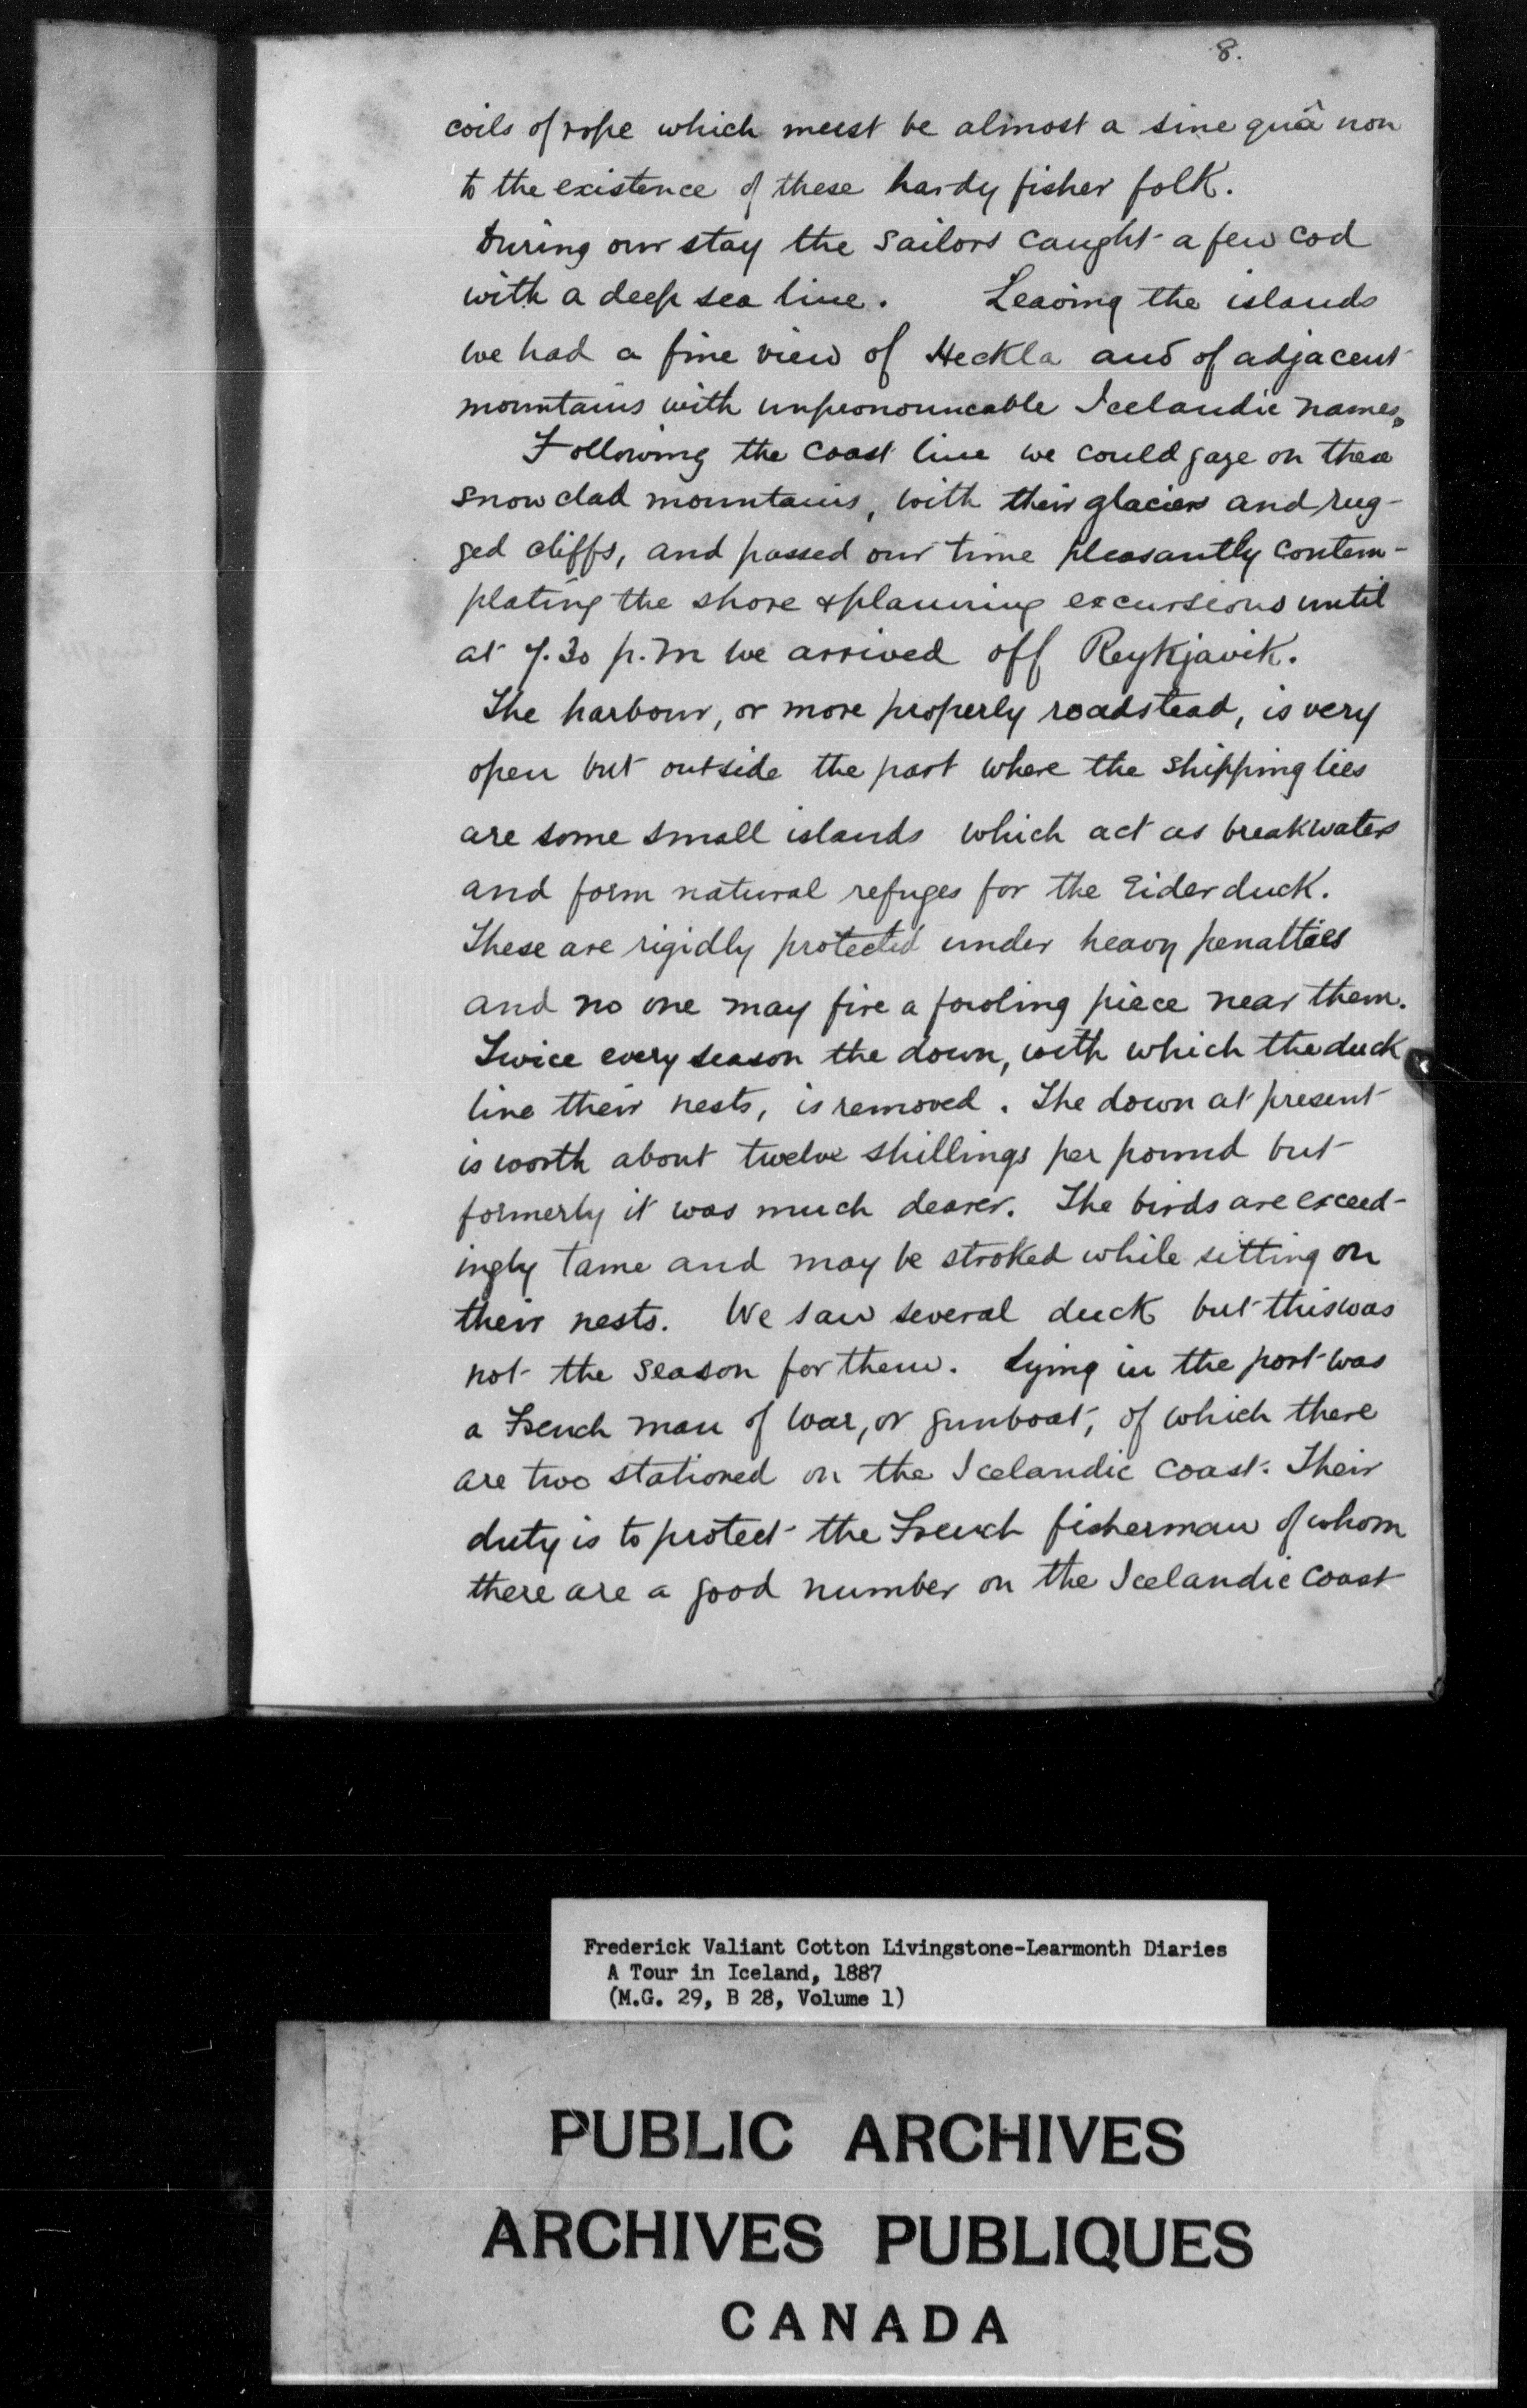 8.
coils of rope which must be almost a sine quâ non
to the existence of these hardy fisher folk.
During our stay the sailors caught a few cod
with a deep sea line. Leaving the islands
we had a fine view of Heckla and of adjacent
mountains with unpronounceable Icelandic names.
Following the coast line we could gaze on these
snow clad mountains, with their glaciers and rug-
ged cliffs, and passed our time pleasantly contem-
plating the shore & planning excursions until
at 7.30 p.m we arrived off Reykjavik.
The harbour, or more properly roadstead, is very
open but outside the part where the shipping lies
are some small islands which act as breakwaters
and form natural refuges for the Eider duck.
These are rigidly protected under heavy penalties
and no one may fire a fowling piece near them.
Twice every season the down, with which the duck
line their nests, is removed. The down at present
is worth about twelve shillings per pound but
formerly it was much dearer. The birds are exceed-
ingly tame and may be stroked while sitting on
their nests. We saw several duck but this was
not the season for them. Lying in the port was
a French man of war, or gunboat, of which there
are two stationed on the Icelandic coast. Their
duty is to protect the French fisherman of whom
there are a good number on the Icelandic coast
Frederick Valiant Cotton Livingstone-Learmonth Diaries
A Tour in Iceland, 1887
(M.G. 29, B 28, Volume 1)
PUBLIC ARCHIVES
ARCHIVES PUBLIQUES
CANADA